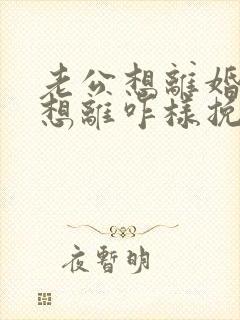 老公想離婚
想離咋樣挽
夜暫明